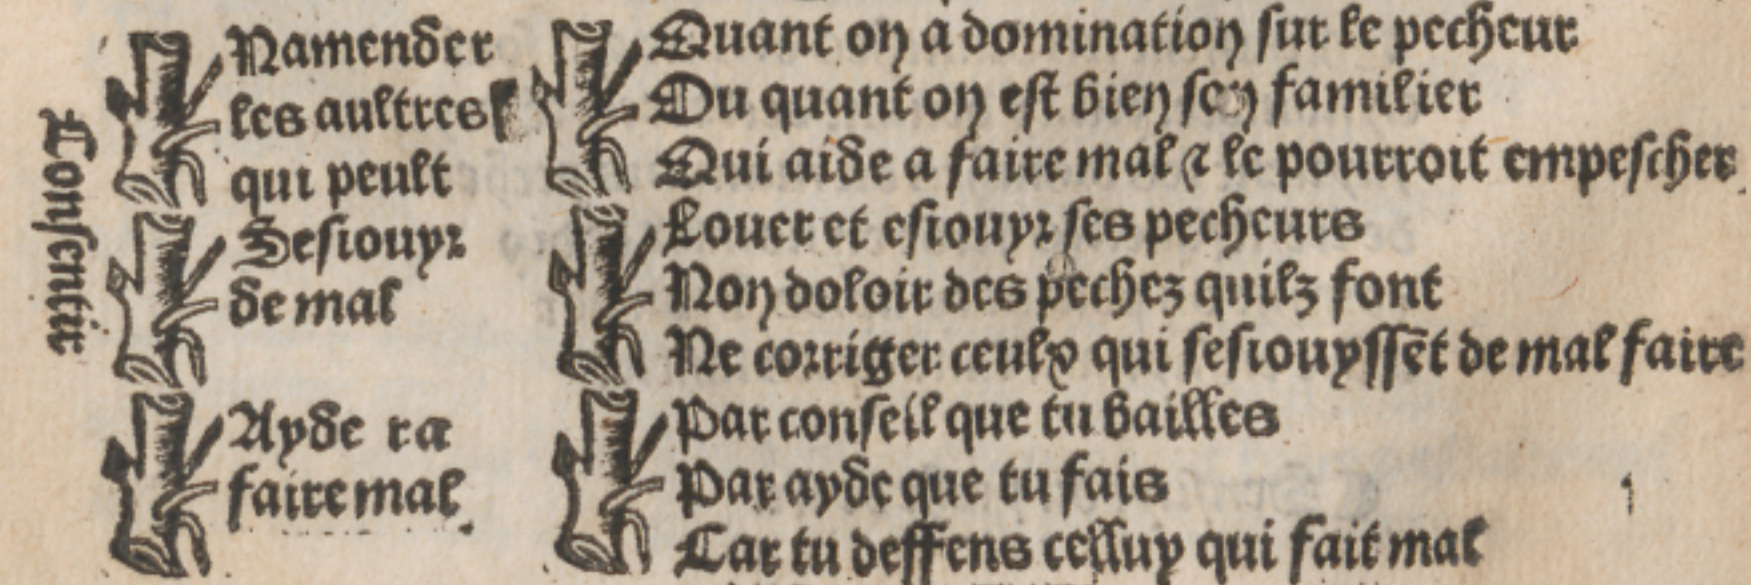 Consentir
Namender
les aultres
qui peult
Quant on a domination sur le pecheur
Ou quant on est bien son familier
Qui aide a faire mal ⁊ le pourroit empescher
Sesiouyr
de mal
Louer et esiouyr ses pecheurs
Non doloir des pechez quilz font
Ne corriger ceulx qui sesiouyssēt de mal faire
Ayde ra
faire mal
Par conseil que tu bailles
Par ayde que tu fais
Car tu deffens celluy qui fait mal